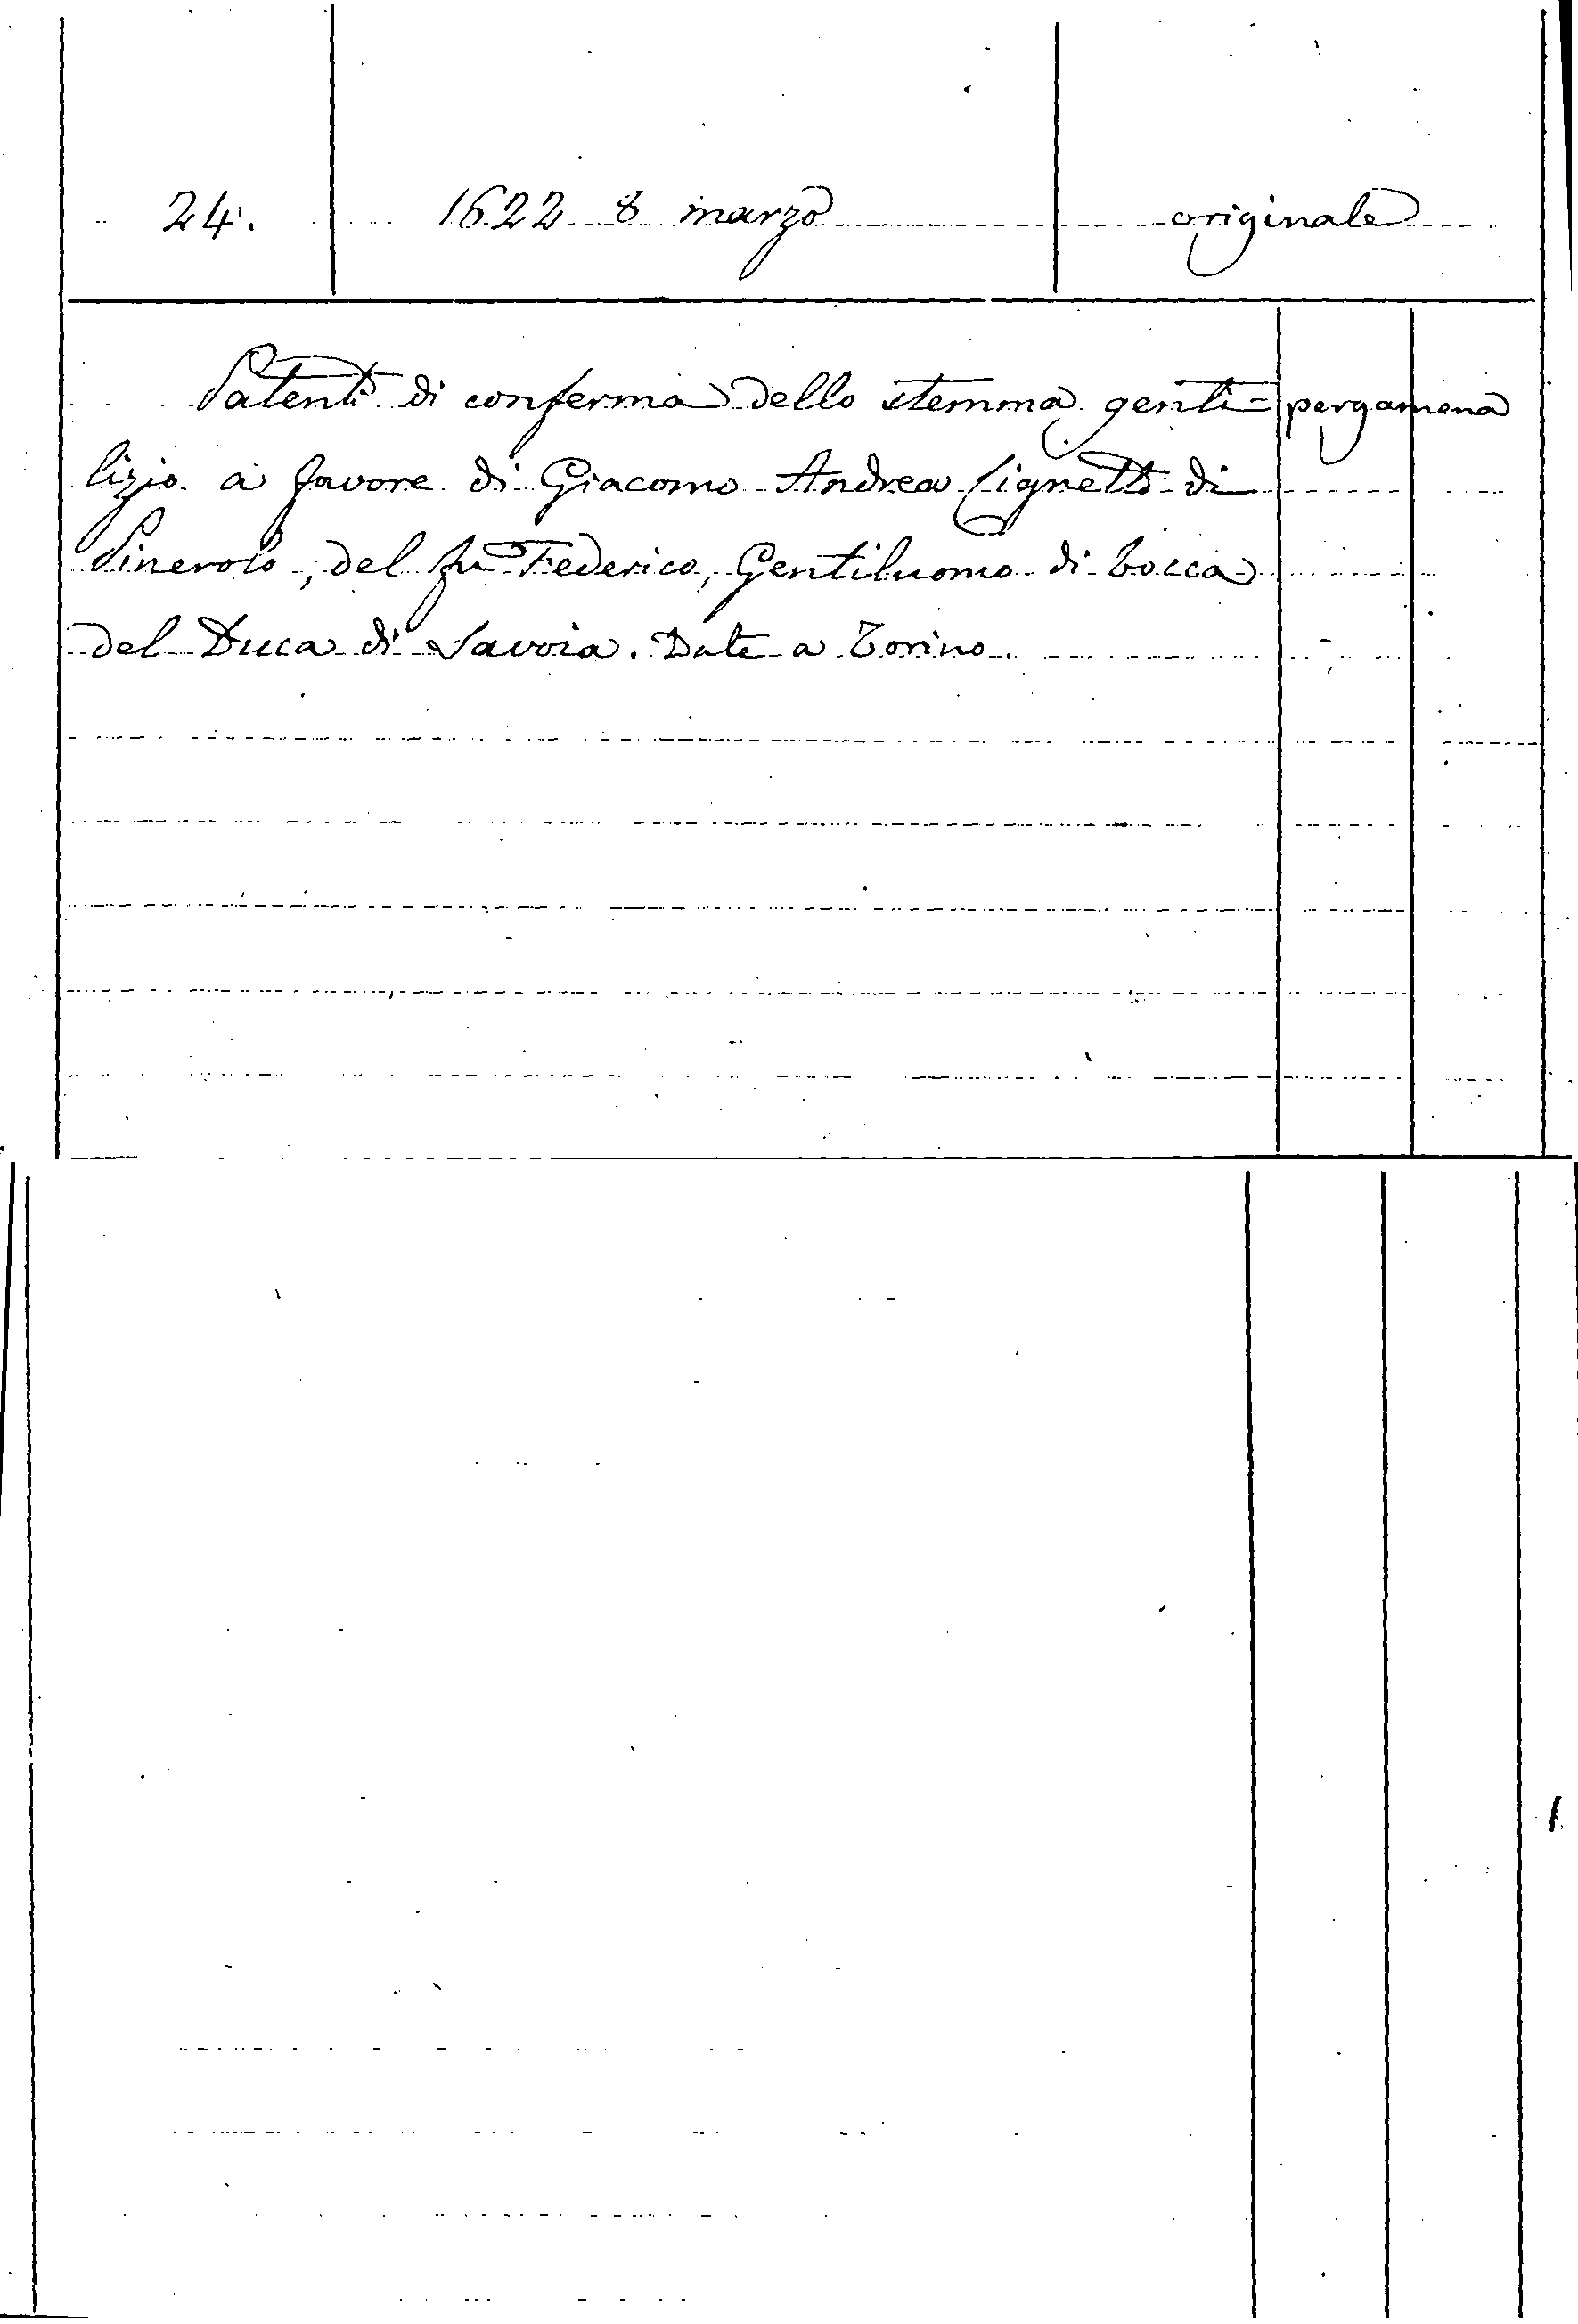 24. 1622 8 marzo originale
Patenti di conferma dello stemma genti= pergamena
lizio a favore di Giacomo Andrea Lignetti di
Pinerolo, del fu Federico, Gentiluomo di bocca
del Duca di Savoia. Date a Torino.